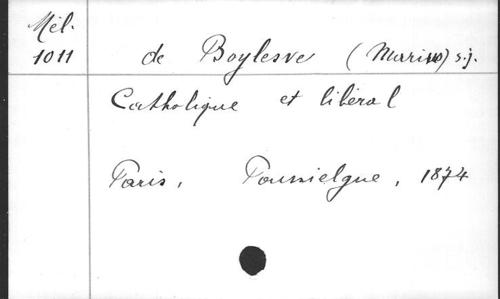 Mél.
1011
de Boylesve (Marin) s.j.
Catholique et libéral
Paris, Poussielgue, 1874